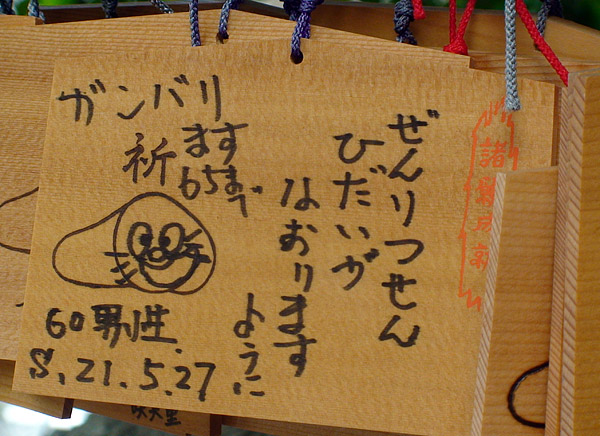 ぜんりつせん
ひだいが
なおります
ように
ガンバリ
ます
祈
65まで
60男性.
S.21.5.27